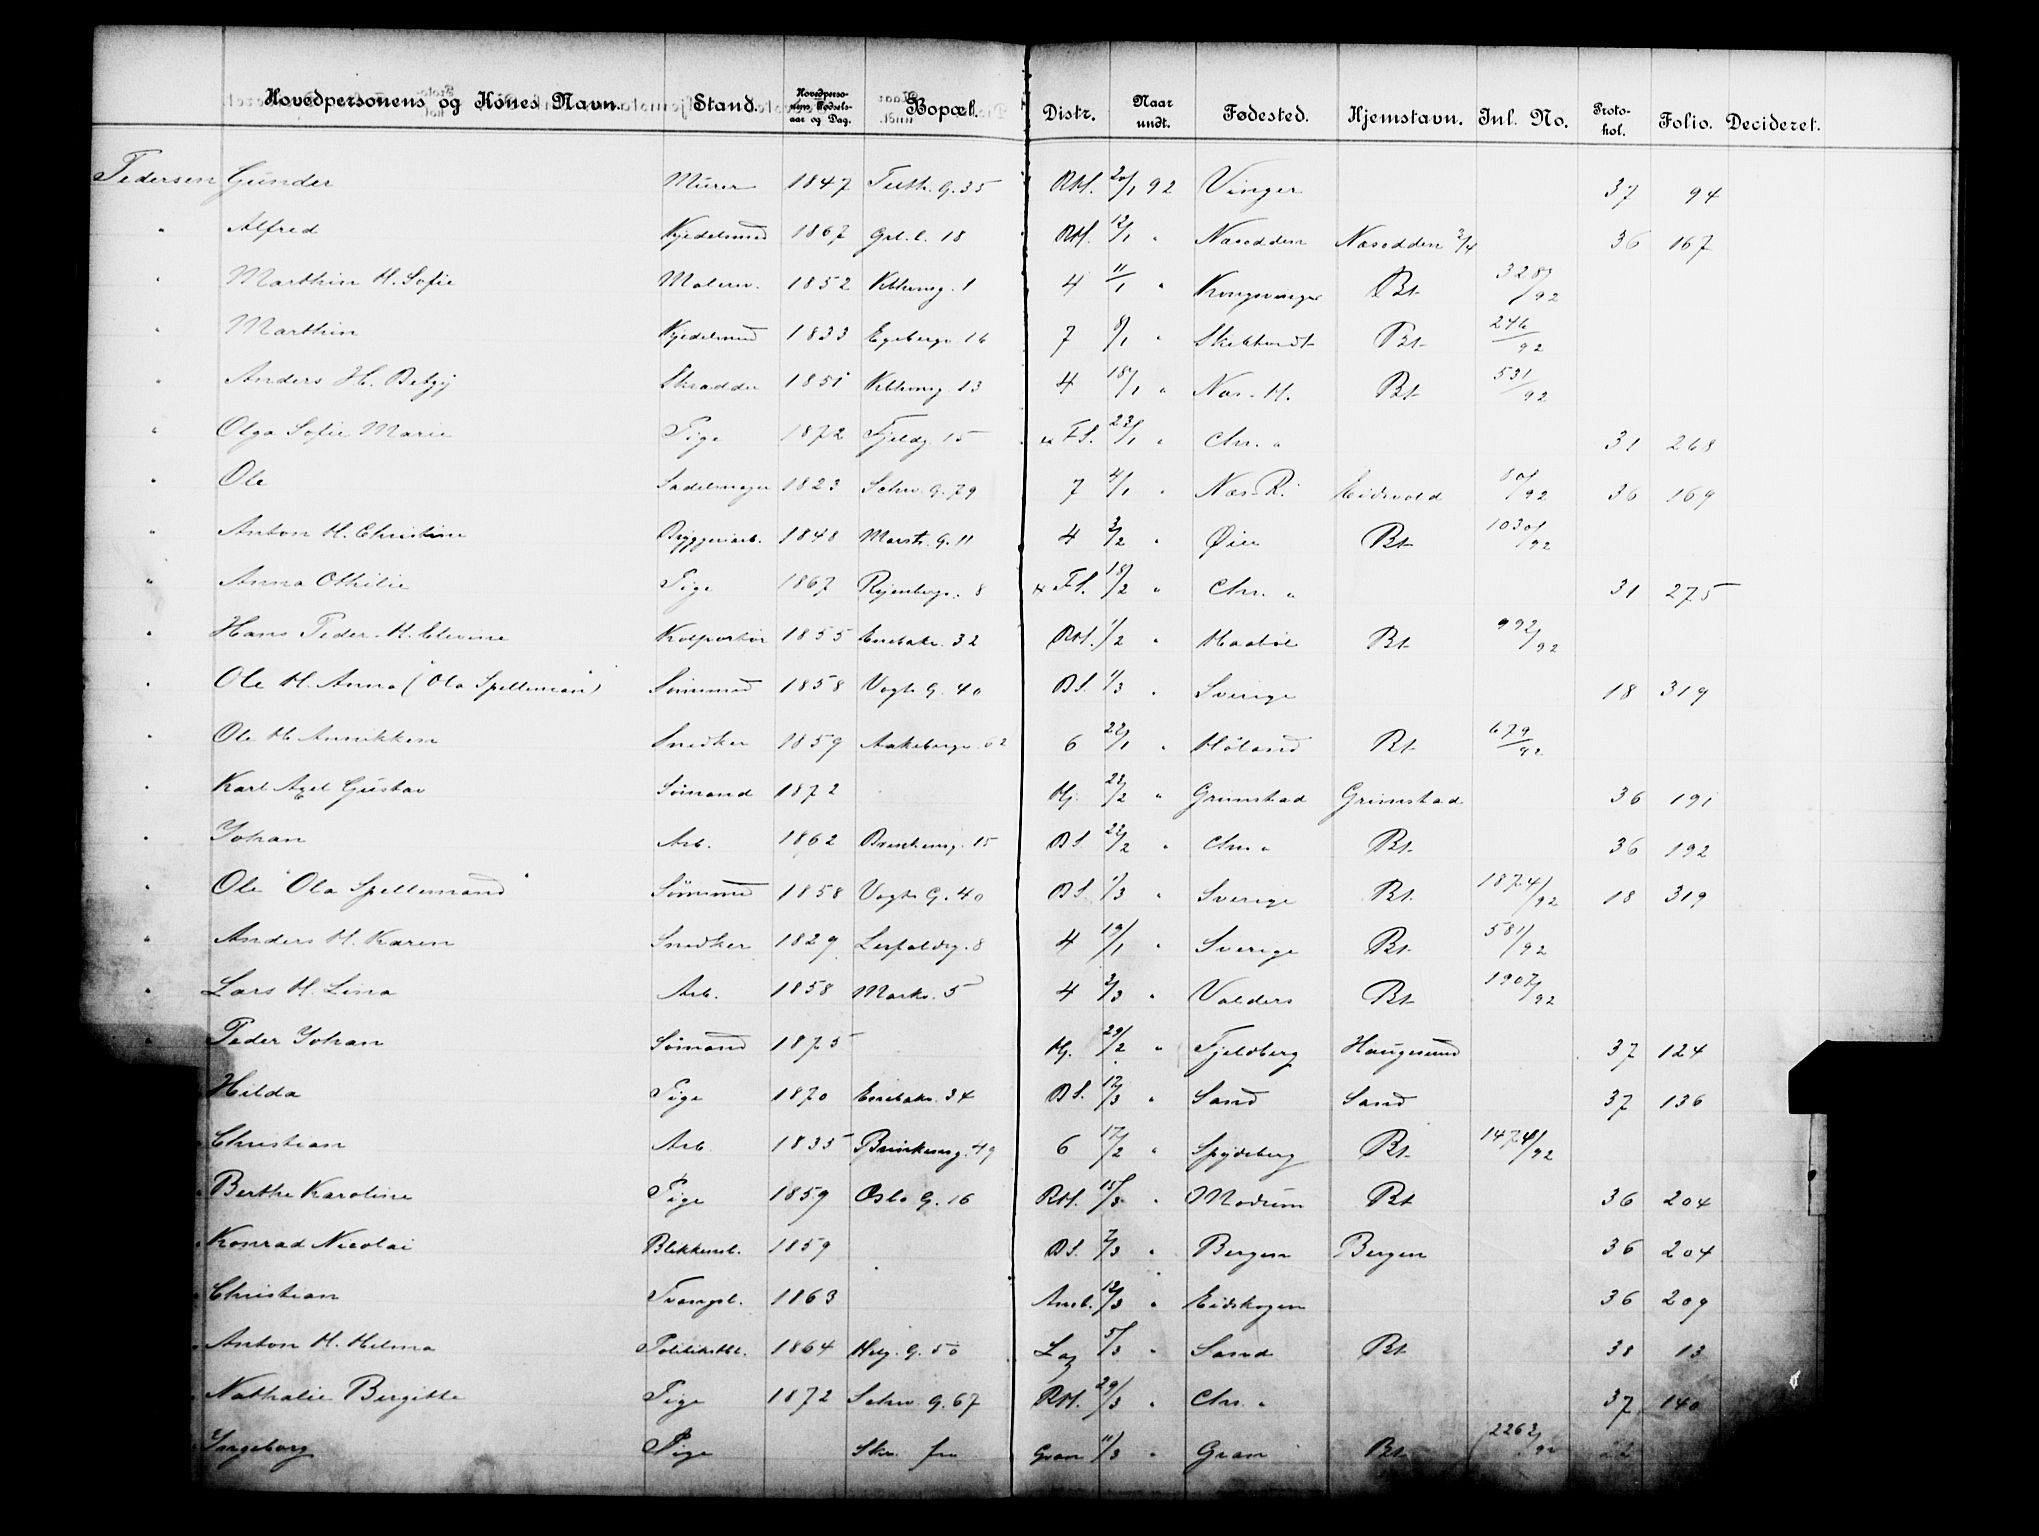 Hovedpersonens og Kones Navn. Stand. Hovedperso-nens Fødsels-aar og Dag. Bopæl. Distr. Naar undt. Fødested. Hjemstavn. Inl. No. Proto-kol. Folio. Decideret.
Pedersen Gunder Murer 1847 G. 35 RM. 20/1 92 Vinger 37 94
" Alfred Kjedelsmed 1867 Grl. l. 18 RM. 12/1 " Næsodden Næsodden 2/4 36 167
" Marthin H. Sofie Malersv. 1852 1 4 11/1 " Kongsvinger Bt. 328/92
" Marthin Kjedelsmed 1833 Egebergv. 16 7 8/1 " Bt. 246/92
" Anders H. Skrædder 1851 13 4 18/1 " Næs. H. Bt. 531/92
" Olga Sofie Marie Pige 1872 Fjeldg. 15 FS. 23/1 " Chr. " 31 268
" Ole Sadelmager 1823 Schw. G. 79 7 4/1 " Næs. R. Eidsvold 80/92 36 169
" Anton H. Christine Bryggeriarb. 1848 Markv. G. 11 4 3/2 " Øier Bt. 1030/92
" Anna Othilie Pige 1867 8 FS. 18/2 " Chr. " 31 275
" Hans Peder H. Elevine Kolportør 1855 Enebakv. 32 RM. 1/2 " Bt. 992/92
" Ole H. Anna ("Ola Spelleman") Sømand 1858 Vogts G. 40 BS. 1/3 " Sverige 18 319
" Ole H. Annikken Snedker 1859 Aakebergv. 62 6 22/1 " Høland Bt. 679/92
" Karl Axel Gustav Sømand 1872 Hj. 23/2 " Grimstad Grimstad 36 191
" Johan Arb. 1862 Brinkeng. 15 BS. 22/2 " Chr. " Bt. 36 192
" Ole "Ola Spellemand" Sømand 1858 Vogts G. 40 BS. 1/3 " Sverige Bt. 1874/92 18 319
" Anders H. Karen Snedker 1829 8 4 19/1 " Sverige Bt. 581/92
" Lars H. Lina Arb. 1858 Markv. 5 4 2/3 " Valders Bt. 1907/92
Peder Johan Sømand 1875 Hj. 29/2 " Fjeldberg Haugesund 37 124
Hilda Pige 1870 Enebakv. 34 BS. 12/3 " Sand Sand 37 136
" Christian Arb. 1835 Brinkeng. 49 6 17/2 " Spydeberg Bt. 1474/92
" Berthe Karoline Pige 1859 Oslo G. 16 RM. 15/3 " Modum Bt. 36 204
" Konrad Nicolai Blikkensl. 1859 BS. 7/3 " Bergen Bergen 36 204
" Christian Tvangsl. 1863 12/3 " Eidskogen 36 209
" Anton H. Helma Politikstbl. 1864 Helg. G. 50 5/3 " Sand Bt. 38 13
" Nathalie Bergitte Pige 1872 Schw. G. 67 RM. 29/3 " Chr. " 37 140
" Ingeborg Pige Gran 11/3 " Gran Bt. 2262/92 22